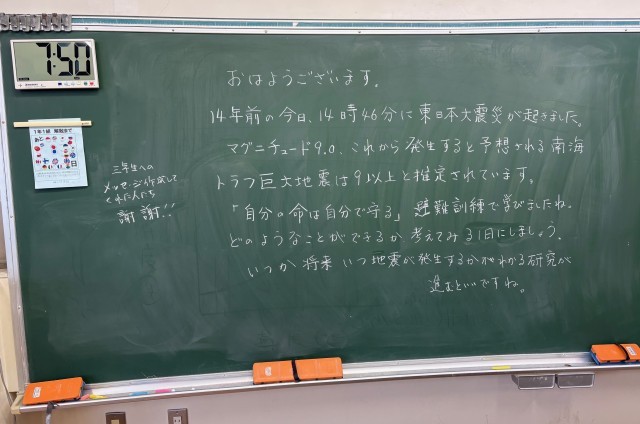 7:50
おはようございます。
14年前の今日、14時46分に東日本大震災が起きました。
マグニチュード9.0。これから発生すると予想される南海
トラフ巨大地震は9以上と推定されています。
「自分の命は自分で守る」避難訓練で学びましたね。
どのようなことができるか考えてみる1日にしましょう。
いつか将来いつ地震が発生するかがわかる研究が
進むといいですね。
1年1組
あと
日
三年生への
メッセージ作成して
くれた人たち
謝謝!!